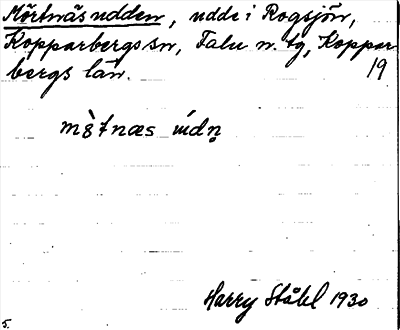 Mörtnäsudden, udde i Rogsjön,
Kopparbergs sn, Falu n. tg, Koppar
bergs län. 19
Harry Ståhl 1930
5.